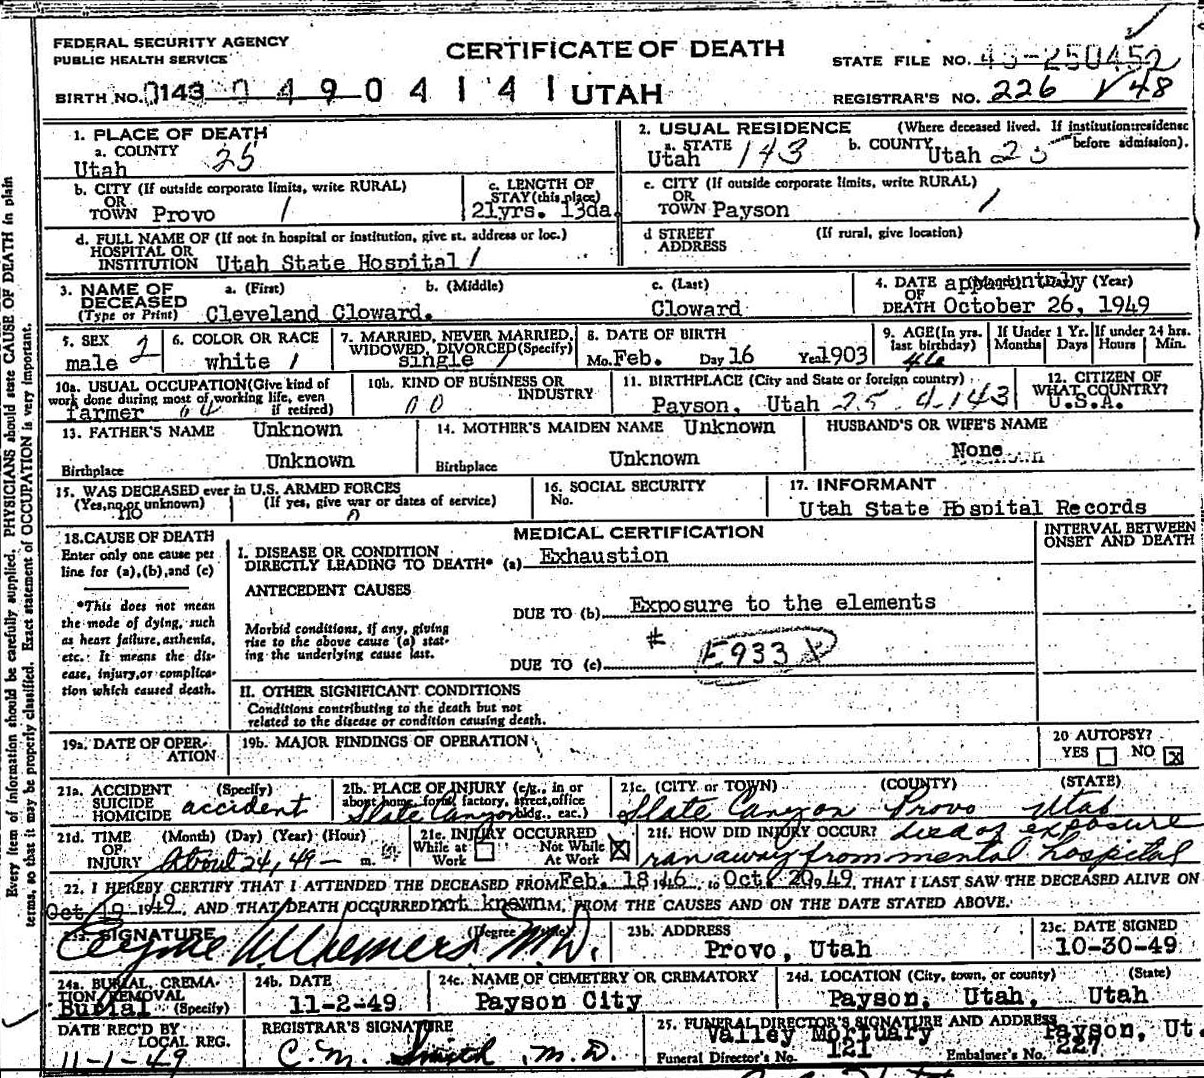 FEDERAL SECURITY AGENCY
PUBLIC HEALTH SERVICE
CERTIFICATE OF DEATH
STATE FILE NO. 49-250452
BIRTH NO. 0143 0 4 9 0 4 1 4 1 UTAH
REGISTRAR'S NO. 226 48
1. PLACE OF DEATH
a. COUNTY
Utah 25
2. USUAL RESIDENCE (Where deceased lived. If institution: residence before admission).
a. STATE Utah 143 b. COUNTY Utah
b. CITY (If outside corporate limits, write RURAL)
OR
TOWN Provo 1
c. LENGTH OF
STAY (this place)
21yrs. 13da.
c. CITY (If outside corporate limits, write RURAL)
OR
TOWN Payson 1
d. FULL NAME OF (If not in hospital or institution, give st. address or loc.)
HOSPITAL OR
INSTITUTION Utah State Hospital 1
d STREET (If rural, give location)
ADDRESS
3. NAME OF DECEASED
(Type or Print)
a. (First) b. (Middle) c. (Last)
Cleveland Cloward. Cloward
4. DATE OF DEATH (Year)
October 26, 1949
5. SEX 2
male
6. COLOR OR RACE
white 1
7. MARRIED, NEVER MARRIED,
WIDOWED, DIVORCED (Specify)
single 1
8. DATE OF BIRTH
Mo. Feb. Day 16 Year 1903
9. AGE (In yrs. last birthday)
46
If Under 1 Yr.
Months Days
If under 24 hrs.
Hours Min.
10a. USUAL OCCUPATION (Give kind of
work done during most of working life, even
if retired)
farmer
10b. KIND OF BUSINESS OR
INDUSTRY
00
11. BIRTHPLACE (City and State or foreign country)
Payson, Utah 25 4-143
12. CITIZEN OF
WHAT COUNTRY?
U.S.A.
13. FATHER'S NAME Unknown
Birthplace Unknown
14. MOTHER'S MAIDEN NAME Unknown
Birthplace Unknown
HUSBAND'S OR WIFE'S NAME
None
15. WAS DECEASED ever in U.S. ARMED FORCES
(Yes, no, or unknown) (If yes, give war or dates of service)
no 0
16. SOCIAL SECURITY
No.
17. INFORMANT
Utah State Hospital Records
18. CAUSE OF DEATH
Enter only one cause per
line for (a), (b), and (c)
*This does not mean
the mode of dying, such
as heart failure, asthenia,
etc. It means the dis-
ease, injury, or complica-
tion which caused death.
MEDICAL CERTIFICATION
INTERVAL BETWEEN
ONSET AND DEATH
I. DISEASE OR CONDITION
DIRECTLY LEADING TO DEATH* (a) Exhaustion
ANTECEDENT CAUSES
DUE TO (b) Exposure to the elements
Morbid conditions, if any, giving
rise to the above cause (a) stat-
ing the underlying cause last.
#
DUE TO (c) E933 X
II. OTHER SIGNIFICANT CONDITIONS
Conditions contributing to the death but not
related to the disease or condition causing death.
19a. DATE OF OPER-
ATION
19b. MAJOR FINDINGS OF OPERATION
20 AUTOPSY?
YES NO X
21a. ACCIDENT (Specify)
SUICIDE
HOMICIDE accident
21b. PLACE OF INJURY (e.g., in or
about home, farm, factory, street, office
bldg., eac.)
Slate Canyon
21c. (CITY or TOWN) (COUNTY) (STATE)
Slate Canyon Provo Utah
21d. TIME (Month) (Day) (Year) (Hour)
OF
INJURY About 24, 49 — m.
21e. INJURY OCCURRED
While at Work Not While At Work X
21f. HOW DID INJURY OCCUR? died of exposure
ran away from mental hospital
22. I HEREBY CERTIFY THAT I ATTENDED THE DECEASED FROM Feb. 18 1946, to Oct. 20 1949 THAT I LAST SAW THE DECEASED ALIVE ON
Oct 19 1949, AND THAT DEATH OCCURRED not known M, FROM THE CAUSES AND ON THE DATE STATED ABOVE.
23a. SIGNATURE (Degree M.D.
23b. ADDRESS
Provo, Utah
23c. DATE SIGNED
10-30-49
24a. BURIAL, CREMA-
TION REMOVAL
Burial (Specify)
24b. DATE
11-2-49
24c. NAME OF CEMETERY OR CREMATORY
Payson City
24d. LOCATION (City, town, or county) (State)
Payson, Utah, Utah
DATE REC'D BY
LOCAL REG.
11-1-49
REGISTRAR'S SIGNATURE
C. M. Smith M.D.
25. FUNERAL DIRECTOR'S SIGNATURE AND ADDRESS
Valley Mortuary Payson, Ut.
Funeral Director's No. 121 Embalmer's No. 227
Every item of information should be carefully supplied. PHYSICIANS should state CAUSE OF DEATH in plain
terms, so that it may be properly classified. Exact statement of OCCUPATION is very important.